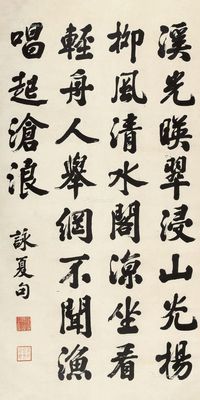 溪光暎翠浸山光楊
柳風清水閣涼坐看
輕舟人舉網不聞漁
唱起滄浪
詠夏句